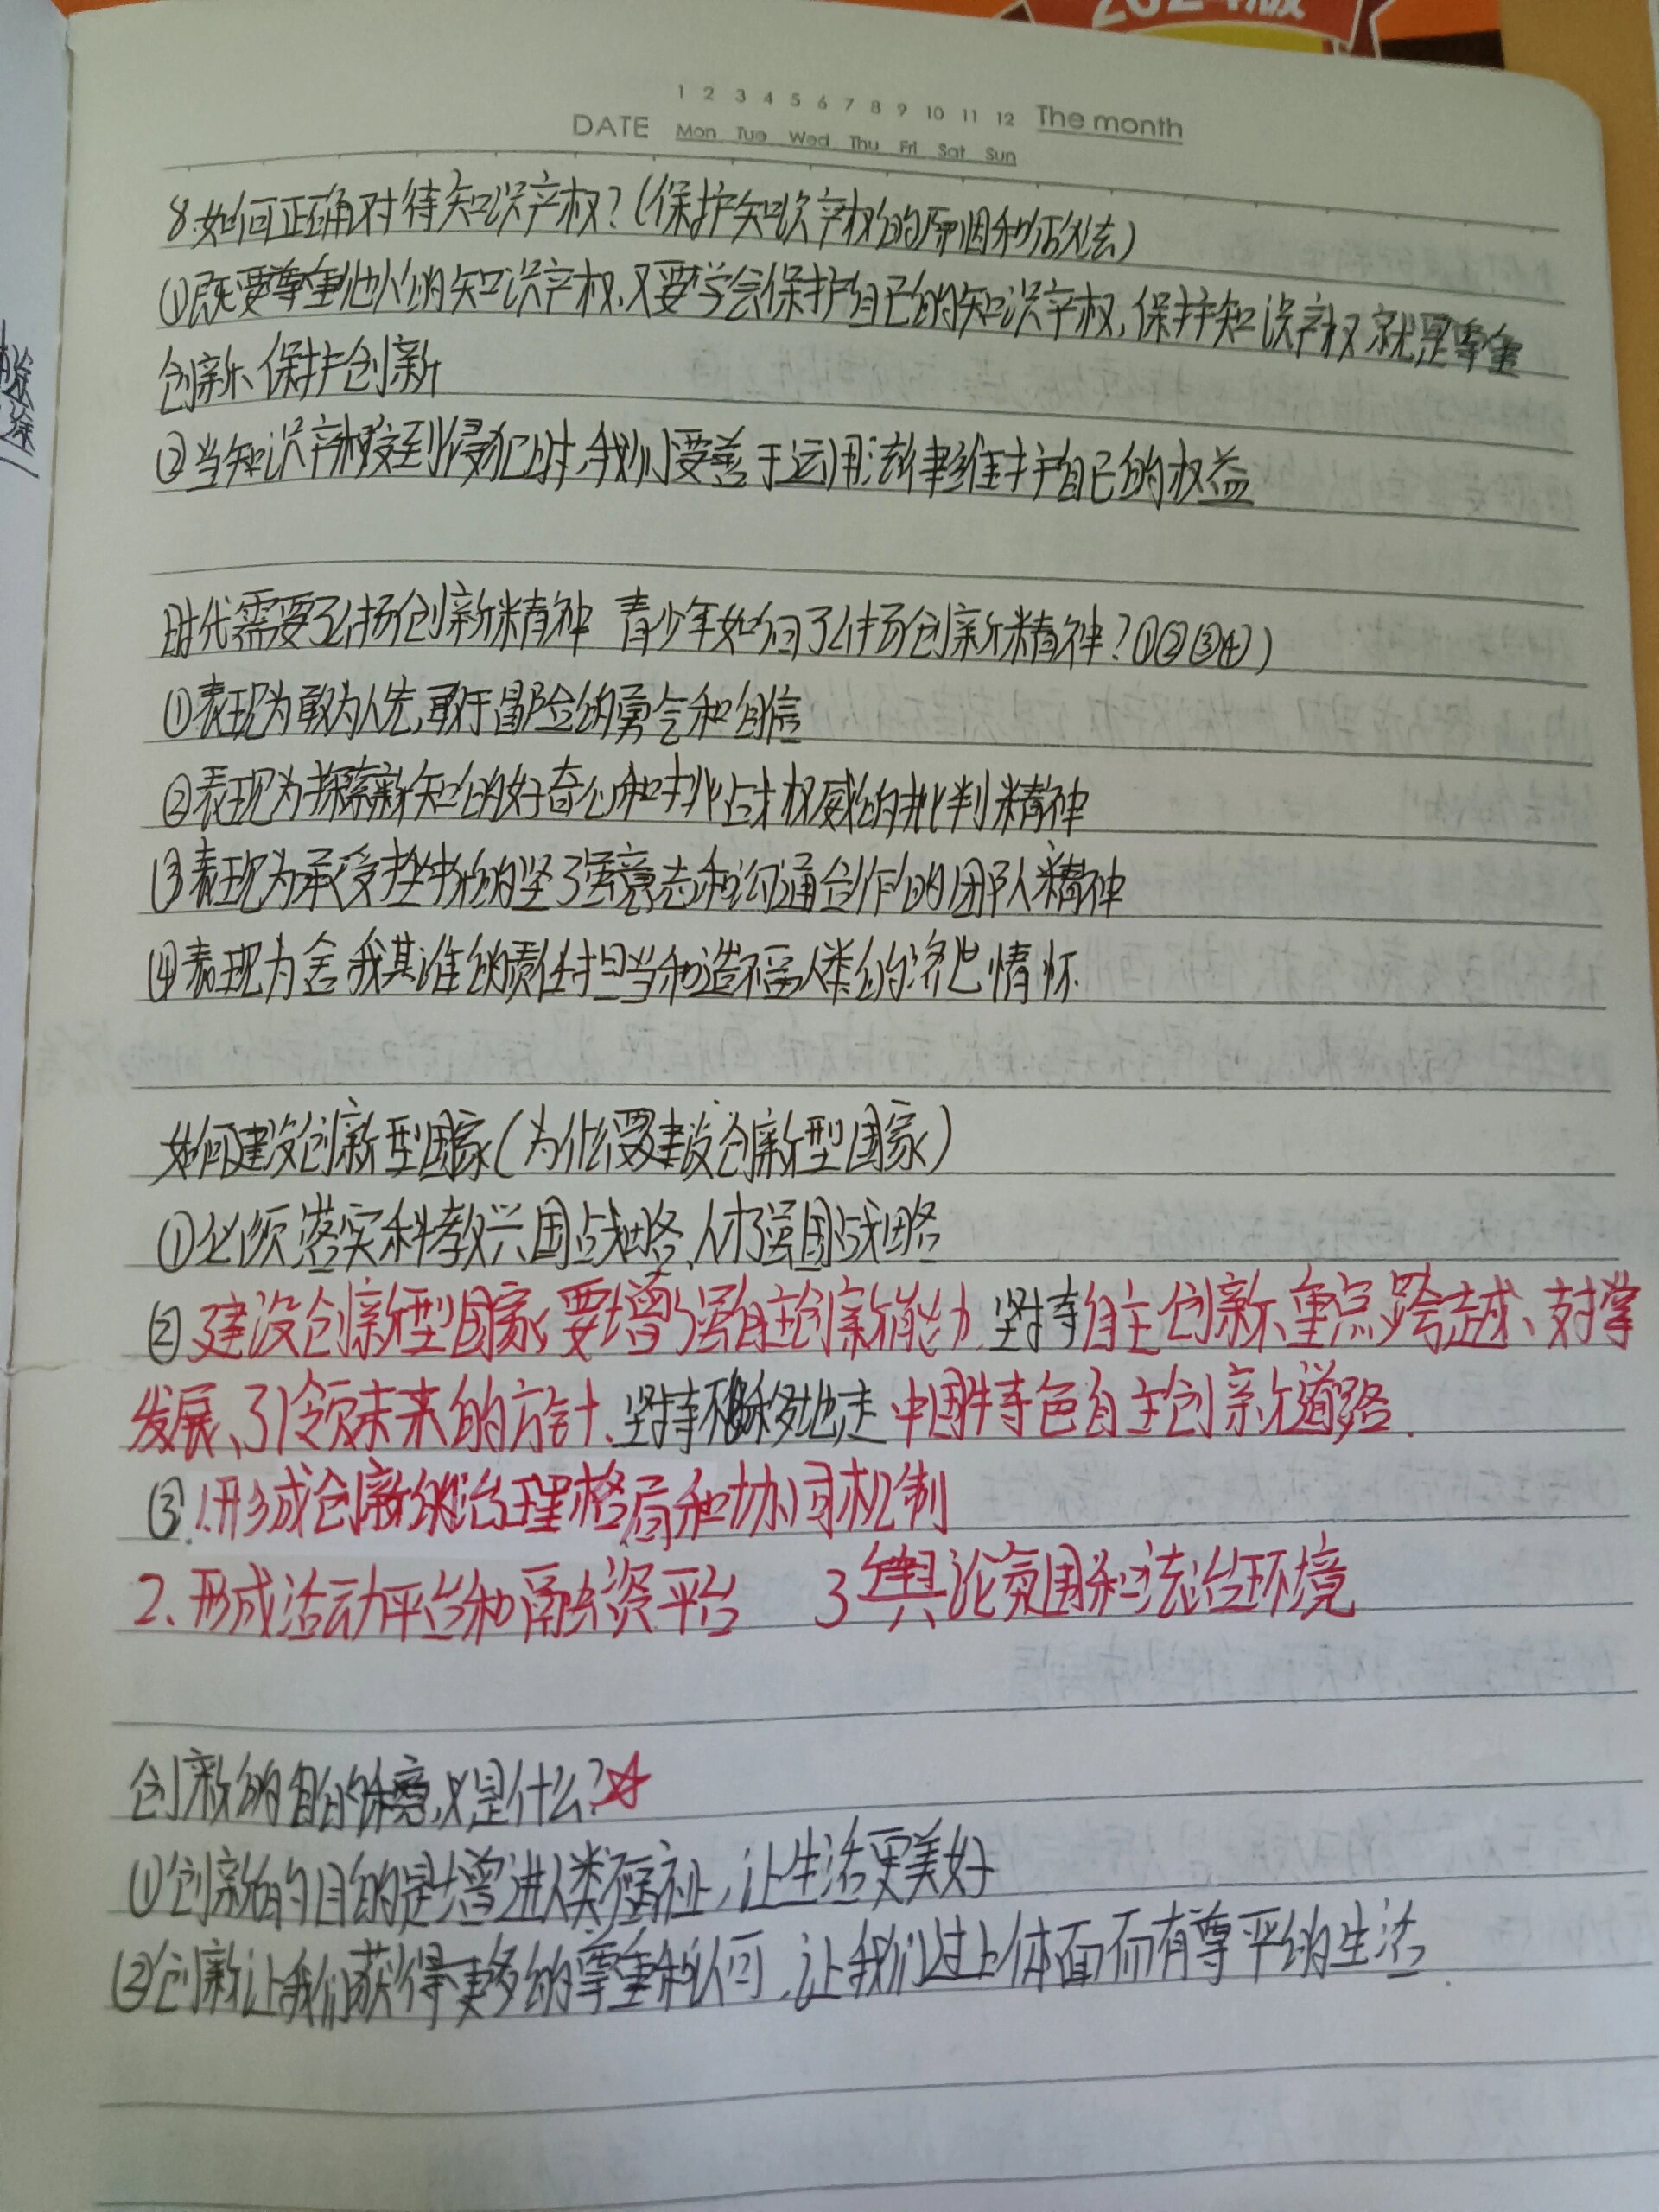 2024版
1 2 3 4 5 6 7 8 9 10 11 12 The month
DATE Mon Tue Wed Thu Fri Sat Sun
8.如何正确对待知识产权?(保护知识产权的原因和做法)
①既要尊重他人的知识产权,又要学会保护自己的知识产权,保护知识产权就是尊重
创新、保护创新
②当知识产权受到侵犯时,我们要善于运用法律维护自己的权益
时代需要弘扬创新精神 青少年如何弘扬创新精神?①②③④)
①表现为敢为人先,敢于冒险的勇气和自信
②表现为探索新知的好奇心和挑战权威的批判精神
③表现为承受挫折的坚强意志和沟通合作的团队精神
④表现为舍我其谁的责任担当和造福人类的济世情怀.
如何建设创新型国家(为什么要建设创新型国家)
①必须落实科教兴国战略、人才强国战略
②建设创新型国家,要增强自主创新能力,坚持自主创新、重点跨越、支撑
发展、引领未来的方针、坚持不移地走中国特色自主创新道路.
③1.形成创新的治理格局和协同机制
2、形成活动平台和融资平台 3舆论氛围和法治环境
创新的目的和意义是什么?☆
①创新的目的是增进人类福祉,让生活更美好
②创新让我们获得更多的尊重和认可,让我们过上体面而有尊严的生活.